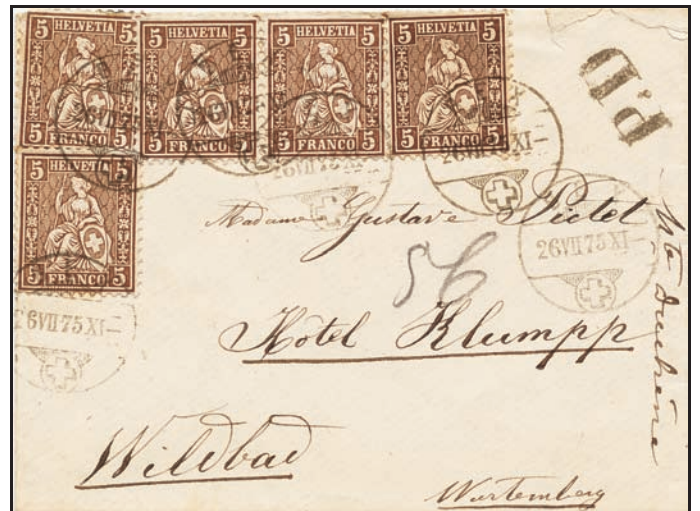 5 HELVETIA 5
5 FRANCO 5
5 HELVETIA 5
5 FRANCO 5
5 HELVETIA 5
5 FRANCO 5
5 HELVETIA 5
5 FRANCO 5
5 HELVETIA 5
5 FRANCO 5
P.D
26 VII 75 XI-
26 VII 75 XI-
26 VII 75 XI-
Madame Gustave Pictet
56
26 VII 75 XI-
Hotel Klumpp
26 VII 75 XI-
Wildbad
Wurtemberg